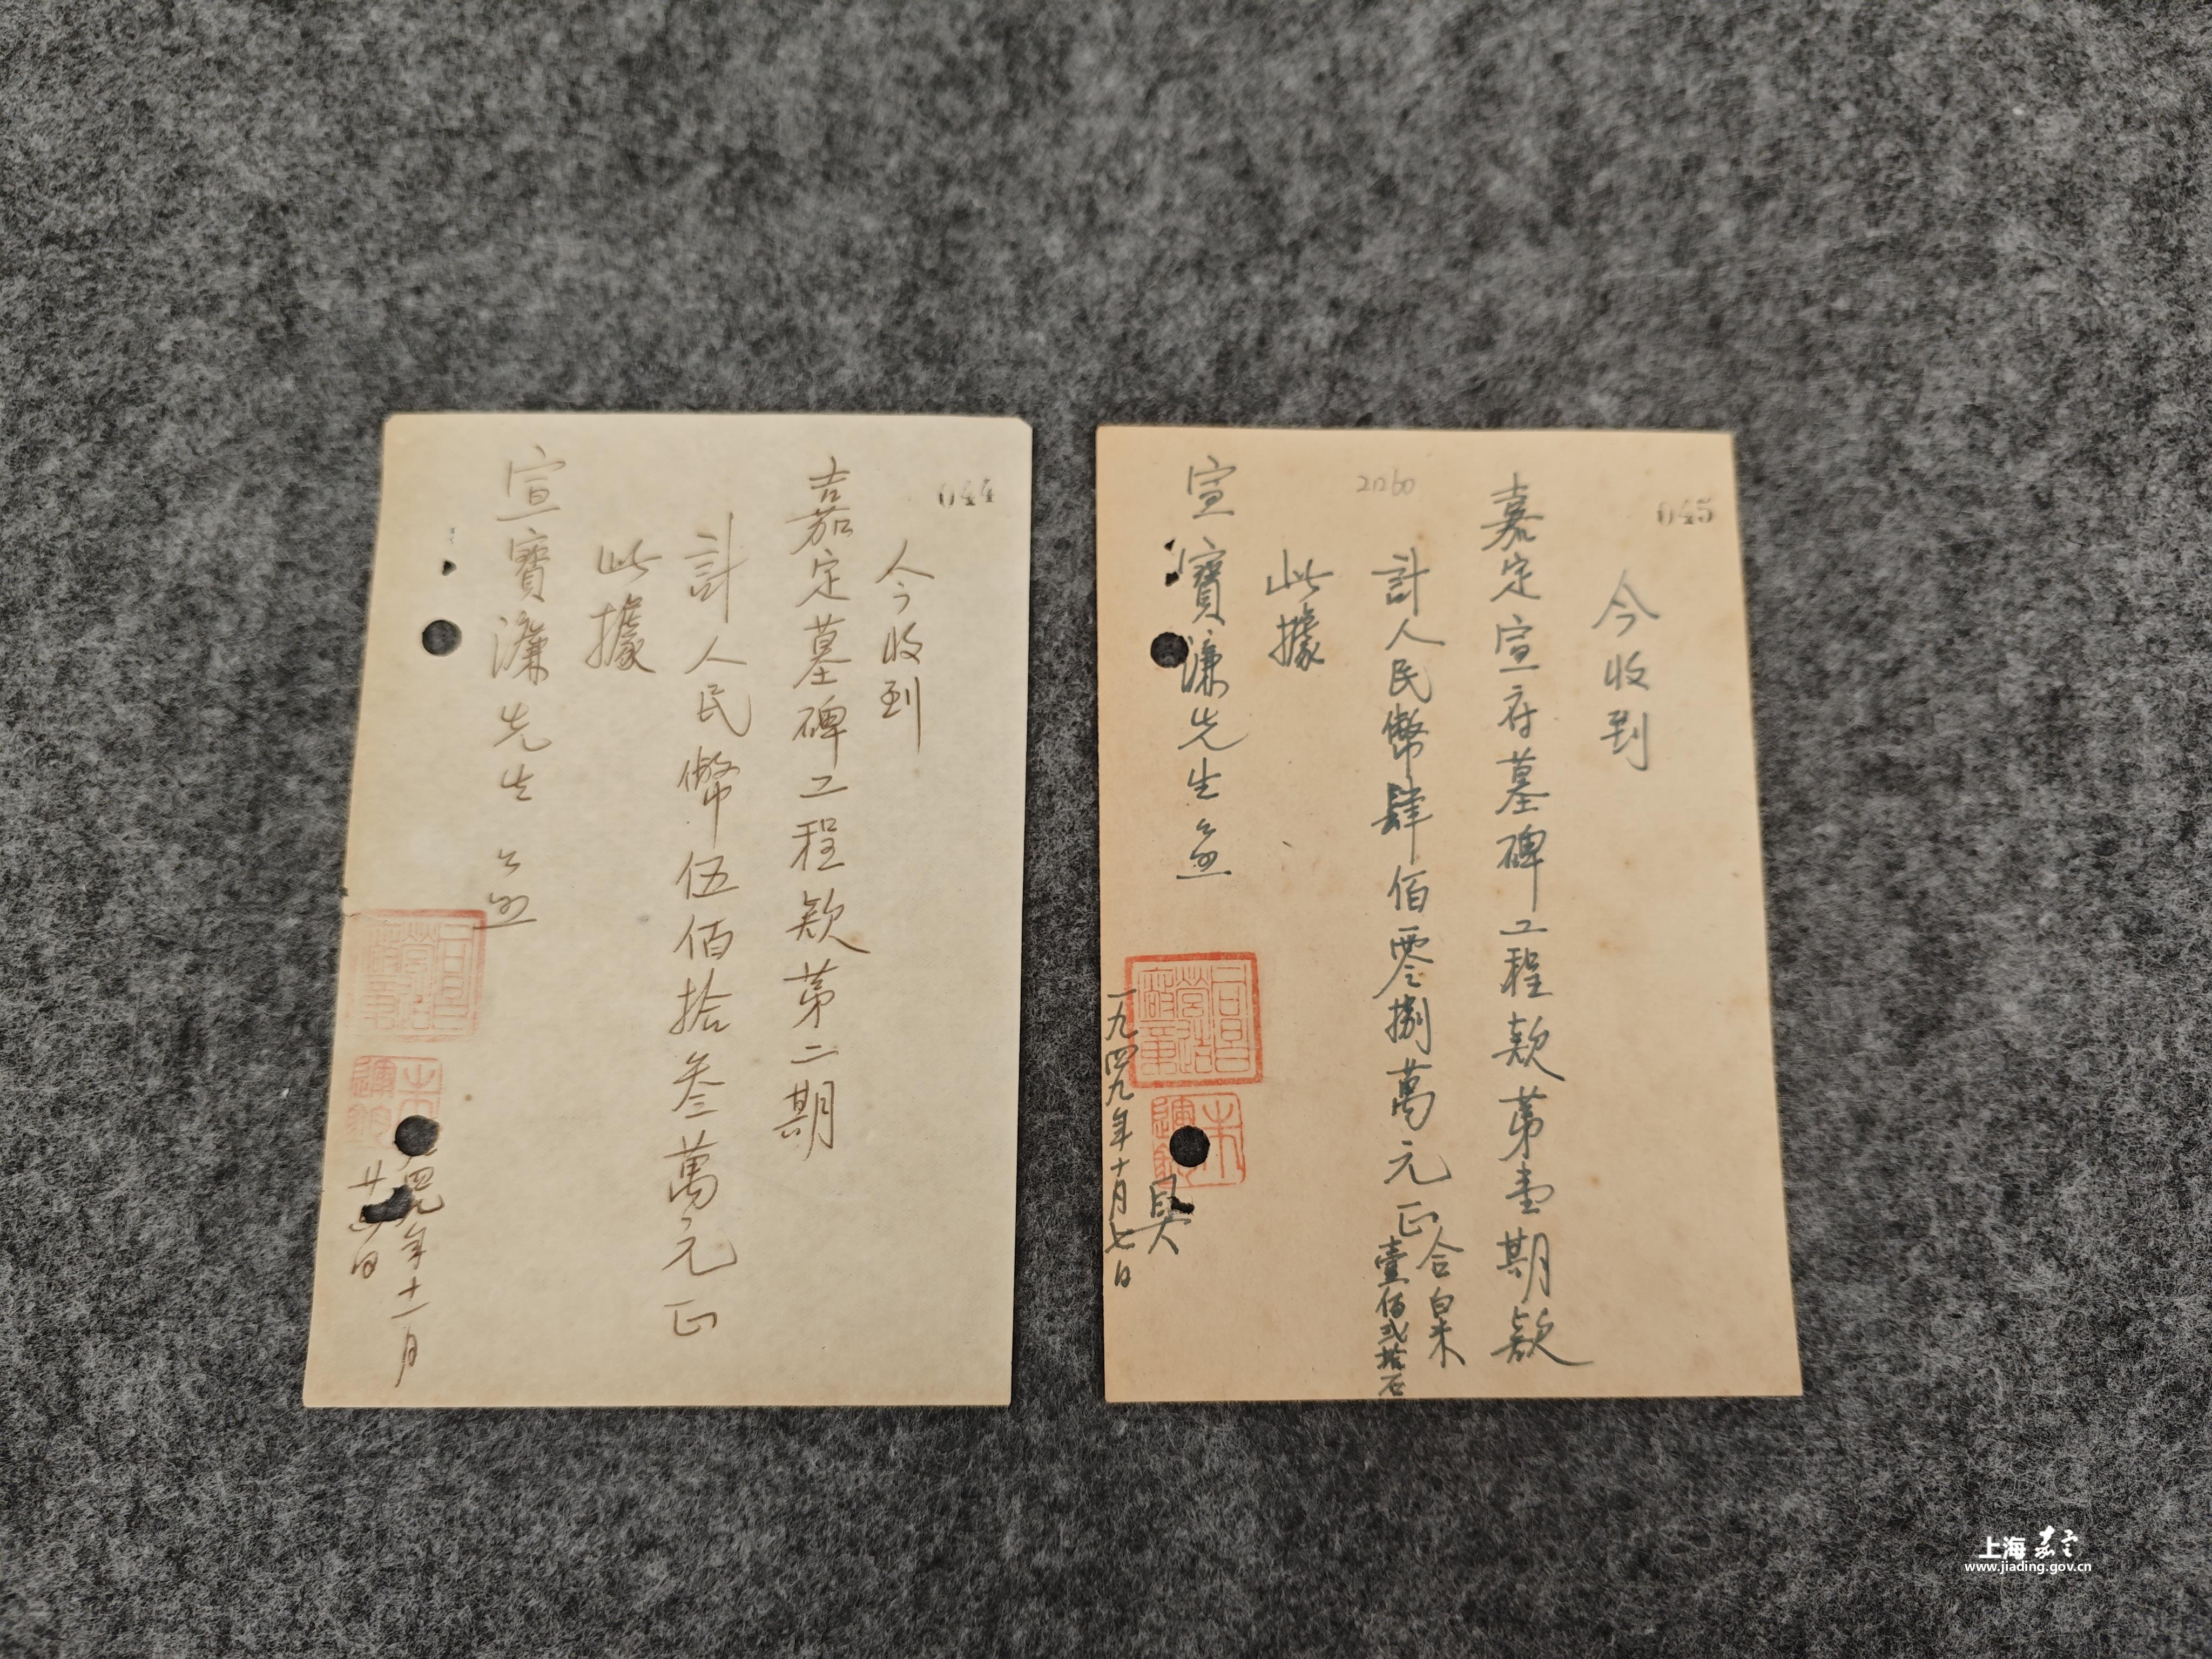 044
今收到
嘉定墓碑工程欵第二期
計人民幣伍佰拾叁萬元正
此據
宣寶濂先生 台照
九四九年十一月
廿四日
045
今收到
嘉定宣府墓碑工程款第壹期欵
2060
計人民幣肆佰零捌萬元正
合白米
壹佰弍拾石
此據
宣寶濂先生 台照
一九四九年十月七日
上海嘉定
www.jiading.gov.cn